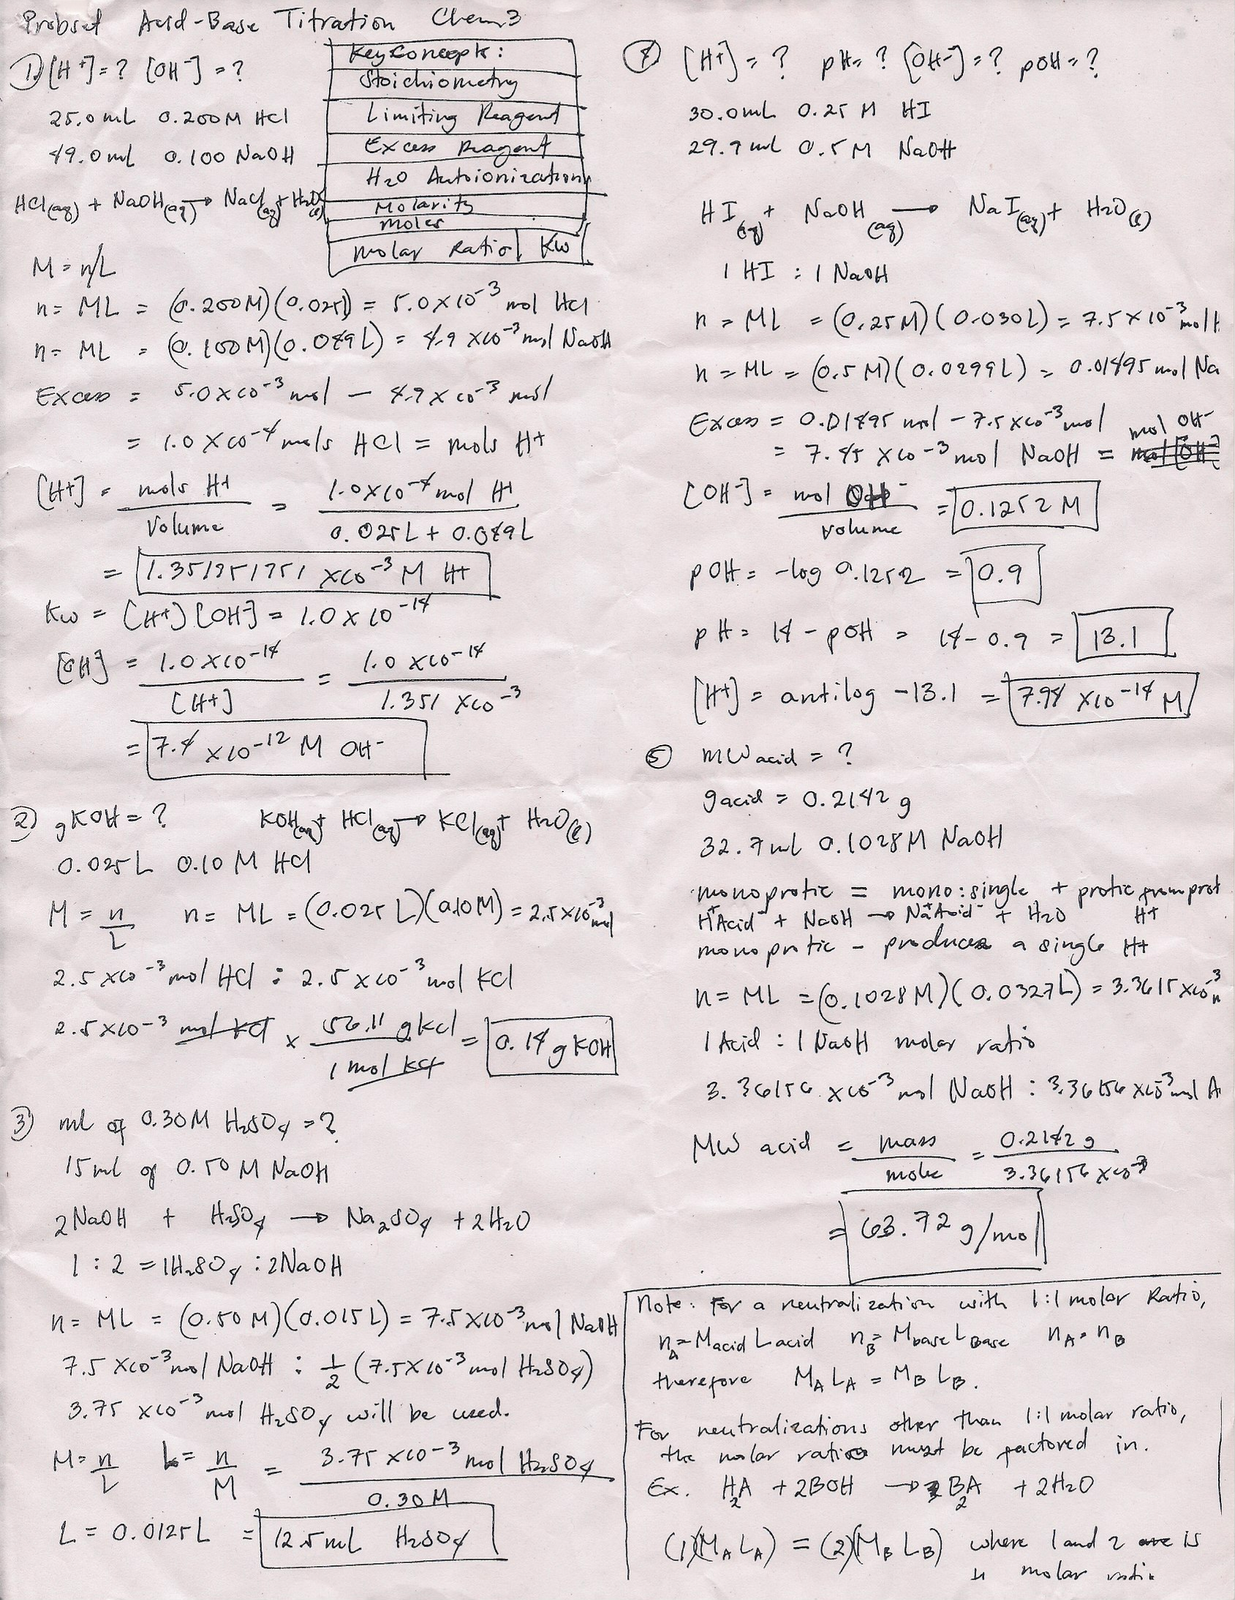 Probset Acid-Base Titration Chem 3
① [H+] = ? [OH-] = ?
25.0 mL 0.200M HCl
49.0 ml 0.100 NaOH
HCl(aq) + NaOH(aq) → NaCl(aq) + H2O(l)
Key Concepts:
Stoichiometry
Limiting Reagent
Excess Reagent
H2O Autoionization
Molarity
Moles
Molar Ratio | Kw
M = n/L
n = ML = (0.200M)(0.025L) = 5.0 x 10^-3 mol HCl
n = ML = (0.100M)(0.049L) = 4.9 x 10^-3 mol NaOH
Excess = 5.0 x 10^-3 mol - 4.9 x 10^-3 mol
= 1.0 x 10^-4 mols HCl = mols H+
[H+] = mols H+ / volume = 1.0 x 10^-4 mol H+ / 0.025L + 0.049L
= 1.351351351 x 10^-3 M H+
Kw = [H+][OH-] = 1.0 x 10^-14
[OH] = 1.0 x 10^-14 / [H+] = 1.0 x 10^-14 / 1.351 x 10^-3
= 7.4 x 10^-12 M OH-
② gKOH = ? KOH(aq) + HCl(aq) → KCl(aq) + H2O(l)
0.025 L 0.10 M HCl
M = n/L n = ML = (0.025 L)(0.10M) = 2.5 x 10^-3 mol
2.5 x 10^-3 mol HCl : 2.5 x 10^-3 mol KCl
2.5 x 10^-3 mol KCl x 56.11 g KCl / 1 mol KCl = 0.14 g KOH
③ ml of 0.30M H2SO4 = ?
15 ml of 0.50 M NaOH
2NaOH + H2SO4 → Na2SO4 + 2H2O
1 : 2 = 1H2SO4 : 2NaOH
n = ML = (0.50 M)(0.015 L) = 7.5 x 10^-3 mol NaOH
7.5 x 10^-3 mol NaOH : 1/2 (7.5 x 10^-3 mol H2SO4)
3.75 x 10^-3 mol H2SO4 will be used.
M = n/L L = n/M = 3.75 x 10^-3 mol H2SO4 / 0.30 M
L = 0.0125 L = 12.5 mL H2SO4
④ [H+] = ? pH = ? [OH-] = ? pOH = ?
30.0 mL 0.25 M HI
29.9 ml 0.5 M NaOH
HI(aq) + NaOH(aq) → NaI(aq) + H2O(l)
1 HI : 1 NaOH
n = ML = (0.25 M)(0.030L) = 7.5 x 10^-3 mol H
n = ML = (0.5 M)(0.0299L) = 0.01495 mol Na
Excess = 0.01495 mol - 7.5 x 10^-3 mol
= 7.45 x 10^-3 mol NaOH = mol OH-
[OH-] = mol OH- / volume = 0.1252 M
pOH = -log 0.1252 = 0.9
pH = 14 - pOH = 14 - 0.9 = 13.1
[H+] = antilog -13.1 = 7.94 x 10^-14 M
⑤ MW acid = ?
g acid = 0.2142 g
32.7 ml 0.1028 M NaOH
monoprotic = mono: single + protic from prot
H+Acid- + NaOH → Na+Acid- + H2O H+
monoprotic - produces a single H+
n = ML = (0.1028 M)(0.0327L) = 3.3615 x 10^-3 m
1 Acid : 1 NaOH molar ratio
3.36156 x 10^-3 mol NaOH : 3.36156 x 10^-3 mol A
MW acid = mass / mole = 0.2142 g / 3.36156 x 10^-3
= 63.72 g/mol
Note: For a neutralization with 1:1 molar Ratio,
nA = Macid Lacid nB = Mbase Lbase nA = nB
therefore MALA = MBLB.
For neutralizations other than 1:1 molar ratio,
the molar ratio must be factored in.
Ex. H2A + 2BOH → B2A + 2H2O
(1)(MALA) = (2)(MBLB) where 1 and 2 is
molar ratio